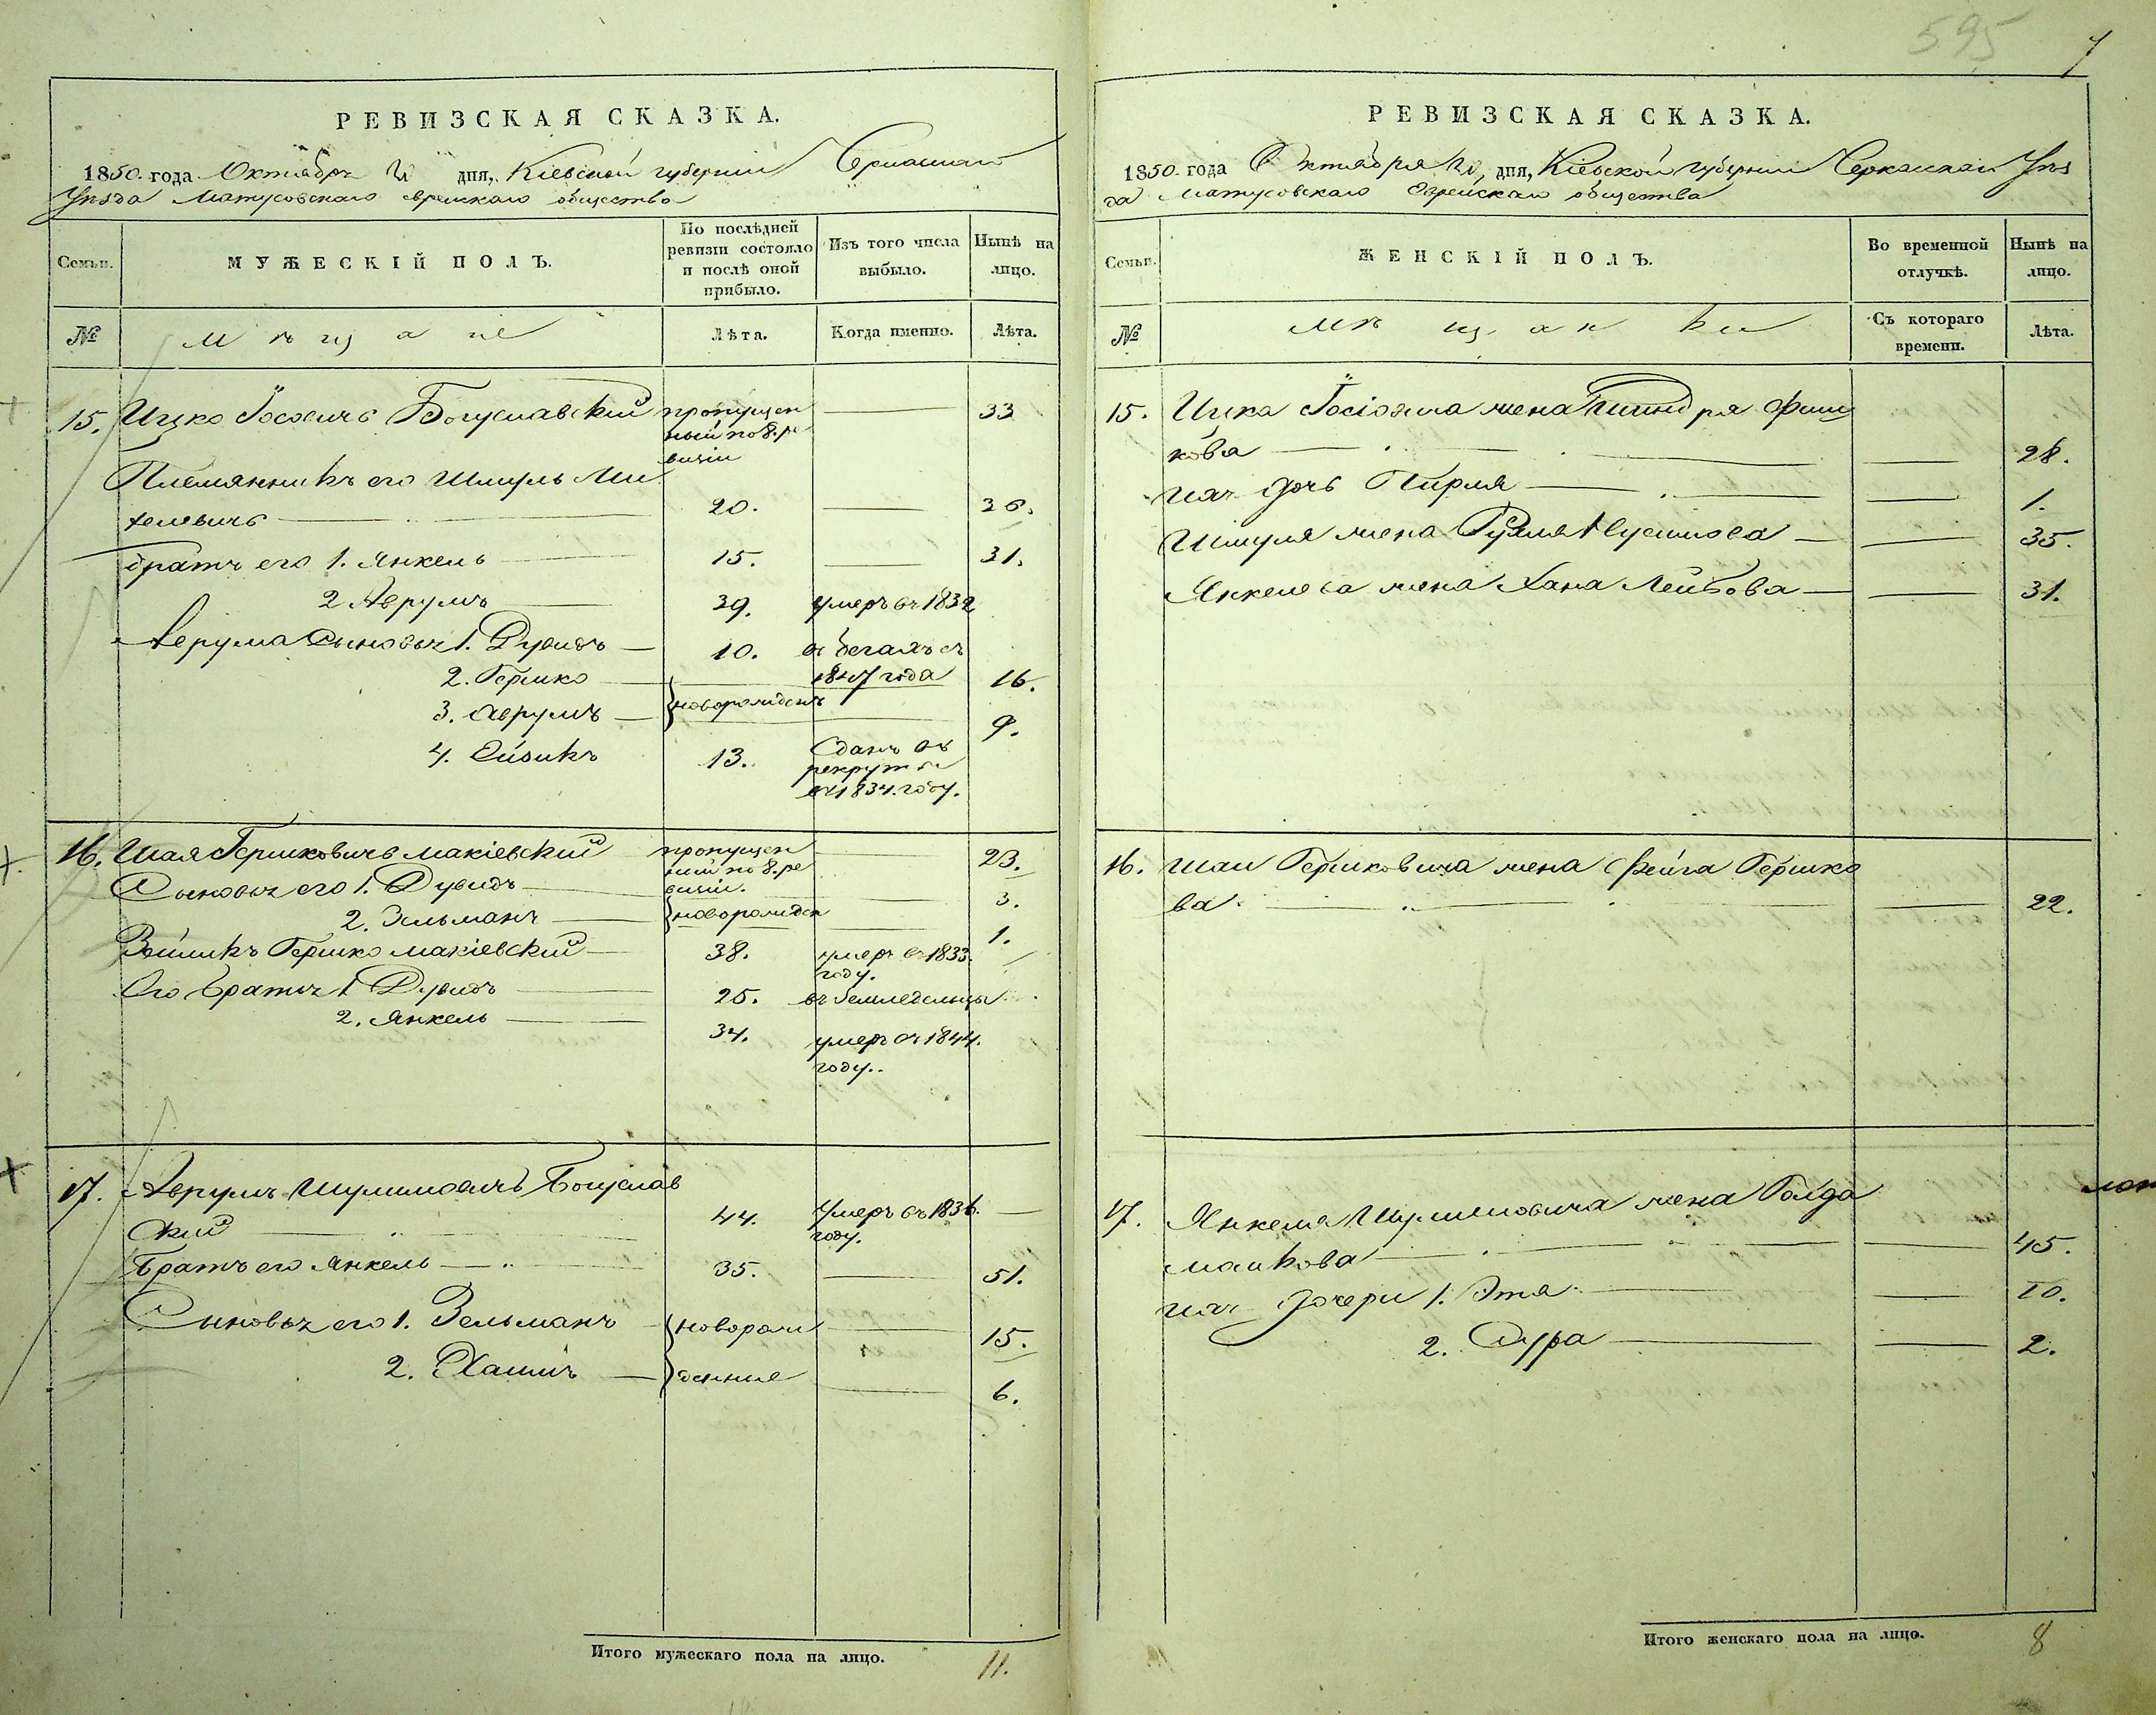 595
7
РЕВИЗСКАЯ СКАЗКА.
1850 года Октября дня, Кіевской губерніи
Уѣзда Матусовскаго еврейскаго общества
Семьи.
МУЖЕСКІЙ ПОЛЪ.
По послѣдней
ревизіи состояло
и послѣ оной
прибыло.
Изъ того числа
выбыло.
Нынѣ на
лицо.
№
Мѣщане
Лѣта.
Когда именно.
Лѣта.
15. Ицко Іосевичъ Богуславскій пропущен 33
ный по 8. ре
визіи
Племянникъ его Шмуль Ми
хелевичъ 20. 36.
братъ его 1. Янкель 15. 31.
2 Аврумъ 39. умеръ въ 1832
Аврума Сыновья 1. Дувидъ 10. въ бегахъ съ
1847 года
2. Гершко 16.
3. Аврумъ новорожденъ 9.
4. Ейзикъ 13. Сданъ въ
рекруты
въ 1834. году.
16. Шая Гершковичъ Макіевскій пропущен 23.
ный по 8. ре
визіи.
Сыновья его 1. Дувидъ 3.
2. Зельманъ новорожден 1.
Гершко Макіевскій 38. умеръ въ 1833.
году.
Его братья 1 Дувидъ 25. въ земледельцы
2. Янкель 34. умеръ въ 1844.
году.
17. Аврумъ Шулимовичъ Богуслав
скій 44. Умеръ въ 1836.
году.
Братъ его Янкель 35. 51.
Сыновья его 1. Зельманъ новорож 15.
2. Хаимъ денные 6.
Итого мужескаго пола на лицо. 11.
РЕВИЗСКАЯ СКАЗКА.
1850. года Октября дня, Кіевской губерніи Черкаскаго Уѣз
да Матусовскаго Еврейскаго общества
Семьи.
ЖЕНСКІЙ ПОЛЪ.
Во временной
отлучкѣ.
Нынѣ на
лицо.
№
Мѣщанки
Съ котораго
времени.
Лѣта.
15. Ицка жена Фиш
кова 28.
ихъ дочь Пирля 1.
Шмуля жена 35.
Янкелева жена Хана Лейбова 31.
16. Шаи Гершковича жена Фейга Гершко
ва 22.
17. Янкеля Шулимовича жена Голда
Машкова 45.
ихъ дочери 1. Этя 10.
2. Сура 2.
Итого женскаго пола на лицо. 8